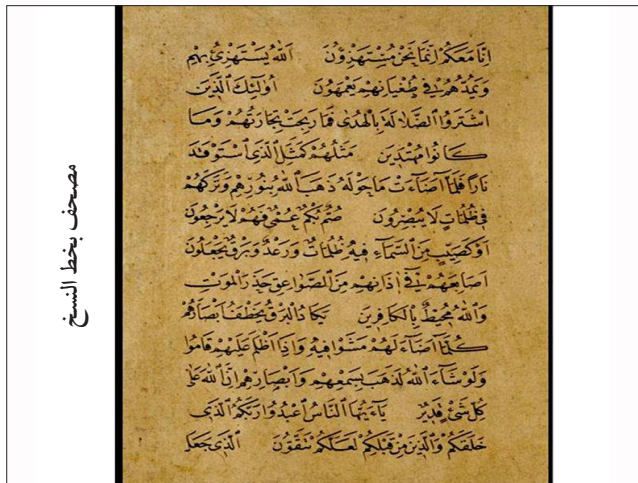 إِنَّا مَعَكُمْ إِنَّمَا نَحْنُ مُسْتَهْزِؤُنَ اَللّٰهُ يَسْتَهْزِئُ بِهِمْ
وَيَمُدُّهُمْ فِي طُغْيَانِهِمْ يَعْمَهُونَ أُولٰئِكَ الَّذِينَ
اشْتَرَوُا الضَّلَالَةَ بِالْهُدٰى فَمَا رَبِحَتْ تِجَارَتُهُمْ وَمَا
كَانُوا مُهْتَدِينَ مَثَلُهُمْ كَمَثَلِ الَّذِى اسْتَوْقَدَ
نَارًا فَلَمَّا أَضَاءَتْ مَا حَوْلَهُ ذَهَبَ اللّٰهُ بِنُورِهِمْ وَتَرَكَهُمْ
فِي ظُلُمَاتٍ لَا يُبْصِرُونَ صُمٌّ بُكْمٌ عُمْيٌ فَهُمْ لَا يَرْجِعُونَ
أَوْ كَصَيِّبٍ مِنَ السَّمَاءِ فِيهِ ظُلُمَاتٌ وَرَعْدٌ وَبَرْقٌ يَجْعَلُونَ
أَصَابِعَهُمْ فِي اٰذَانِهِمْ مِنَ الصَّوَاعِقِ حَذَرَ الْمَوْتِ
وَاللّٰهُ مُحِيطٌ بِالْكَافِرِينَ يَكَادُ الْبَرْقُ يَخْطَفُ أَبْصَارَهُمْ
كُلَّمَا أَضَاءَ لَهُمْ مَشَوْا فِيهِ وَإِذَا أَظْلَمَ عَلَيْهِمْ قَامُوا
وَلَوْ شَاءَ اللّٰهُ لَذَهَبَ بِسَمْعِهِمْ وَأَبْصَارِهِمْ إِنَّ اللّٰهَ عَلٰى
كُلِّ شَيْءٍ قَدِيرٌ يَاءَيُّهَا النَّاسُ اعْبُدُوا رَبَّكُمُ الَّذِى
خَلَقَكُمْ وَالَّذِينَ مِنْ قَبْلِكُمْ لَعَلَّكُمْ تَتَّقُونَ اَلَّذِى جَعَلَ
مصحف بخط النسخ